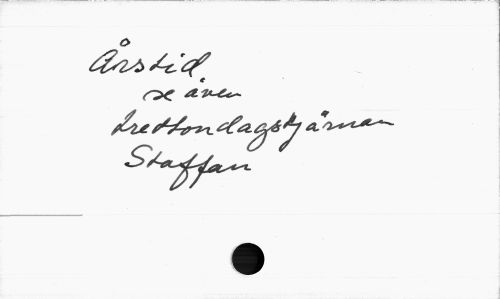 Årstid
se även
trettondagstjärnan
Staffan